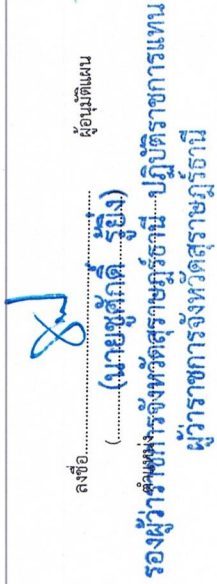 ลงชื่อ........................................ผู้อนุมัติแผน
(นายชูศักดิ์ รู้ยิ่ง)
ตำแหน่ง รองผู้ว่าราชการจังหวัดสุราษฎร์ธานี ปฏิบัติราชการแทน
ผู้ว่าราชการจังหวัดสุราษฎร์ธานี